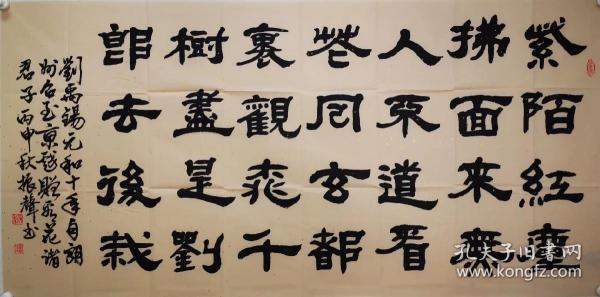 紫陌紅塵
拂面來無
人不道看
花回玄都
裏觀桃千
樹盡是劉
郎去後栽
劉禹錫元和十年自朗
州召至京戲贈看花諸
君子丙申秋振聲書
孔夫子旧书网
www.kongfz.com